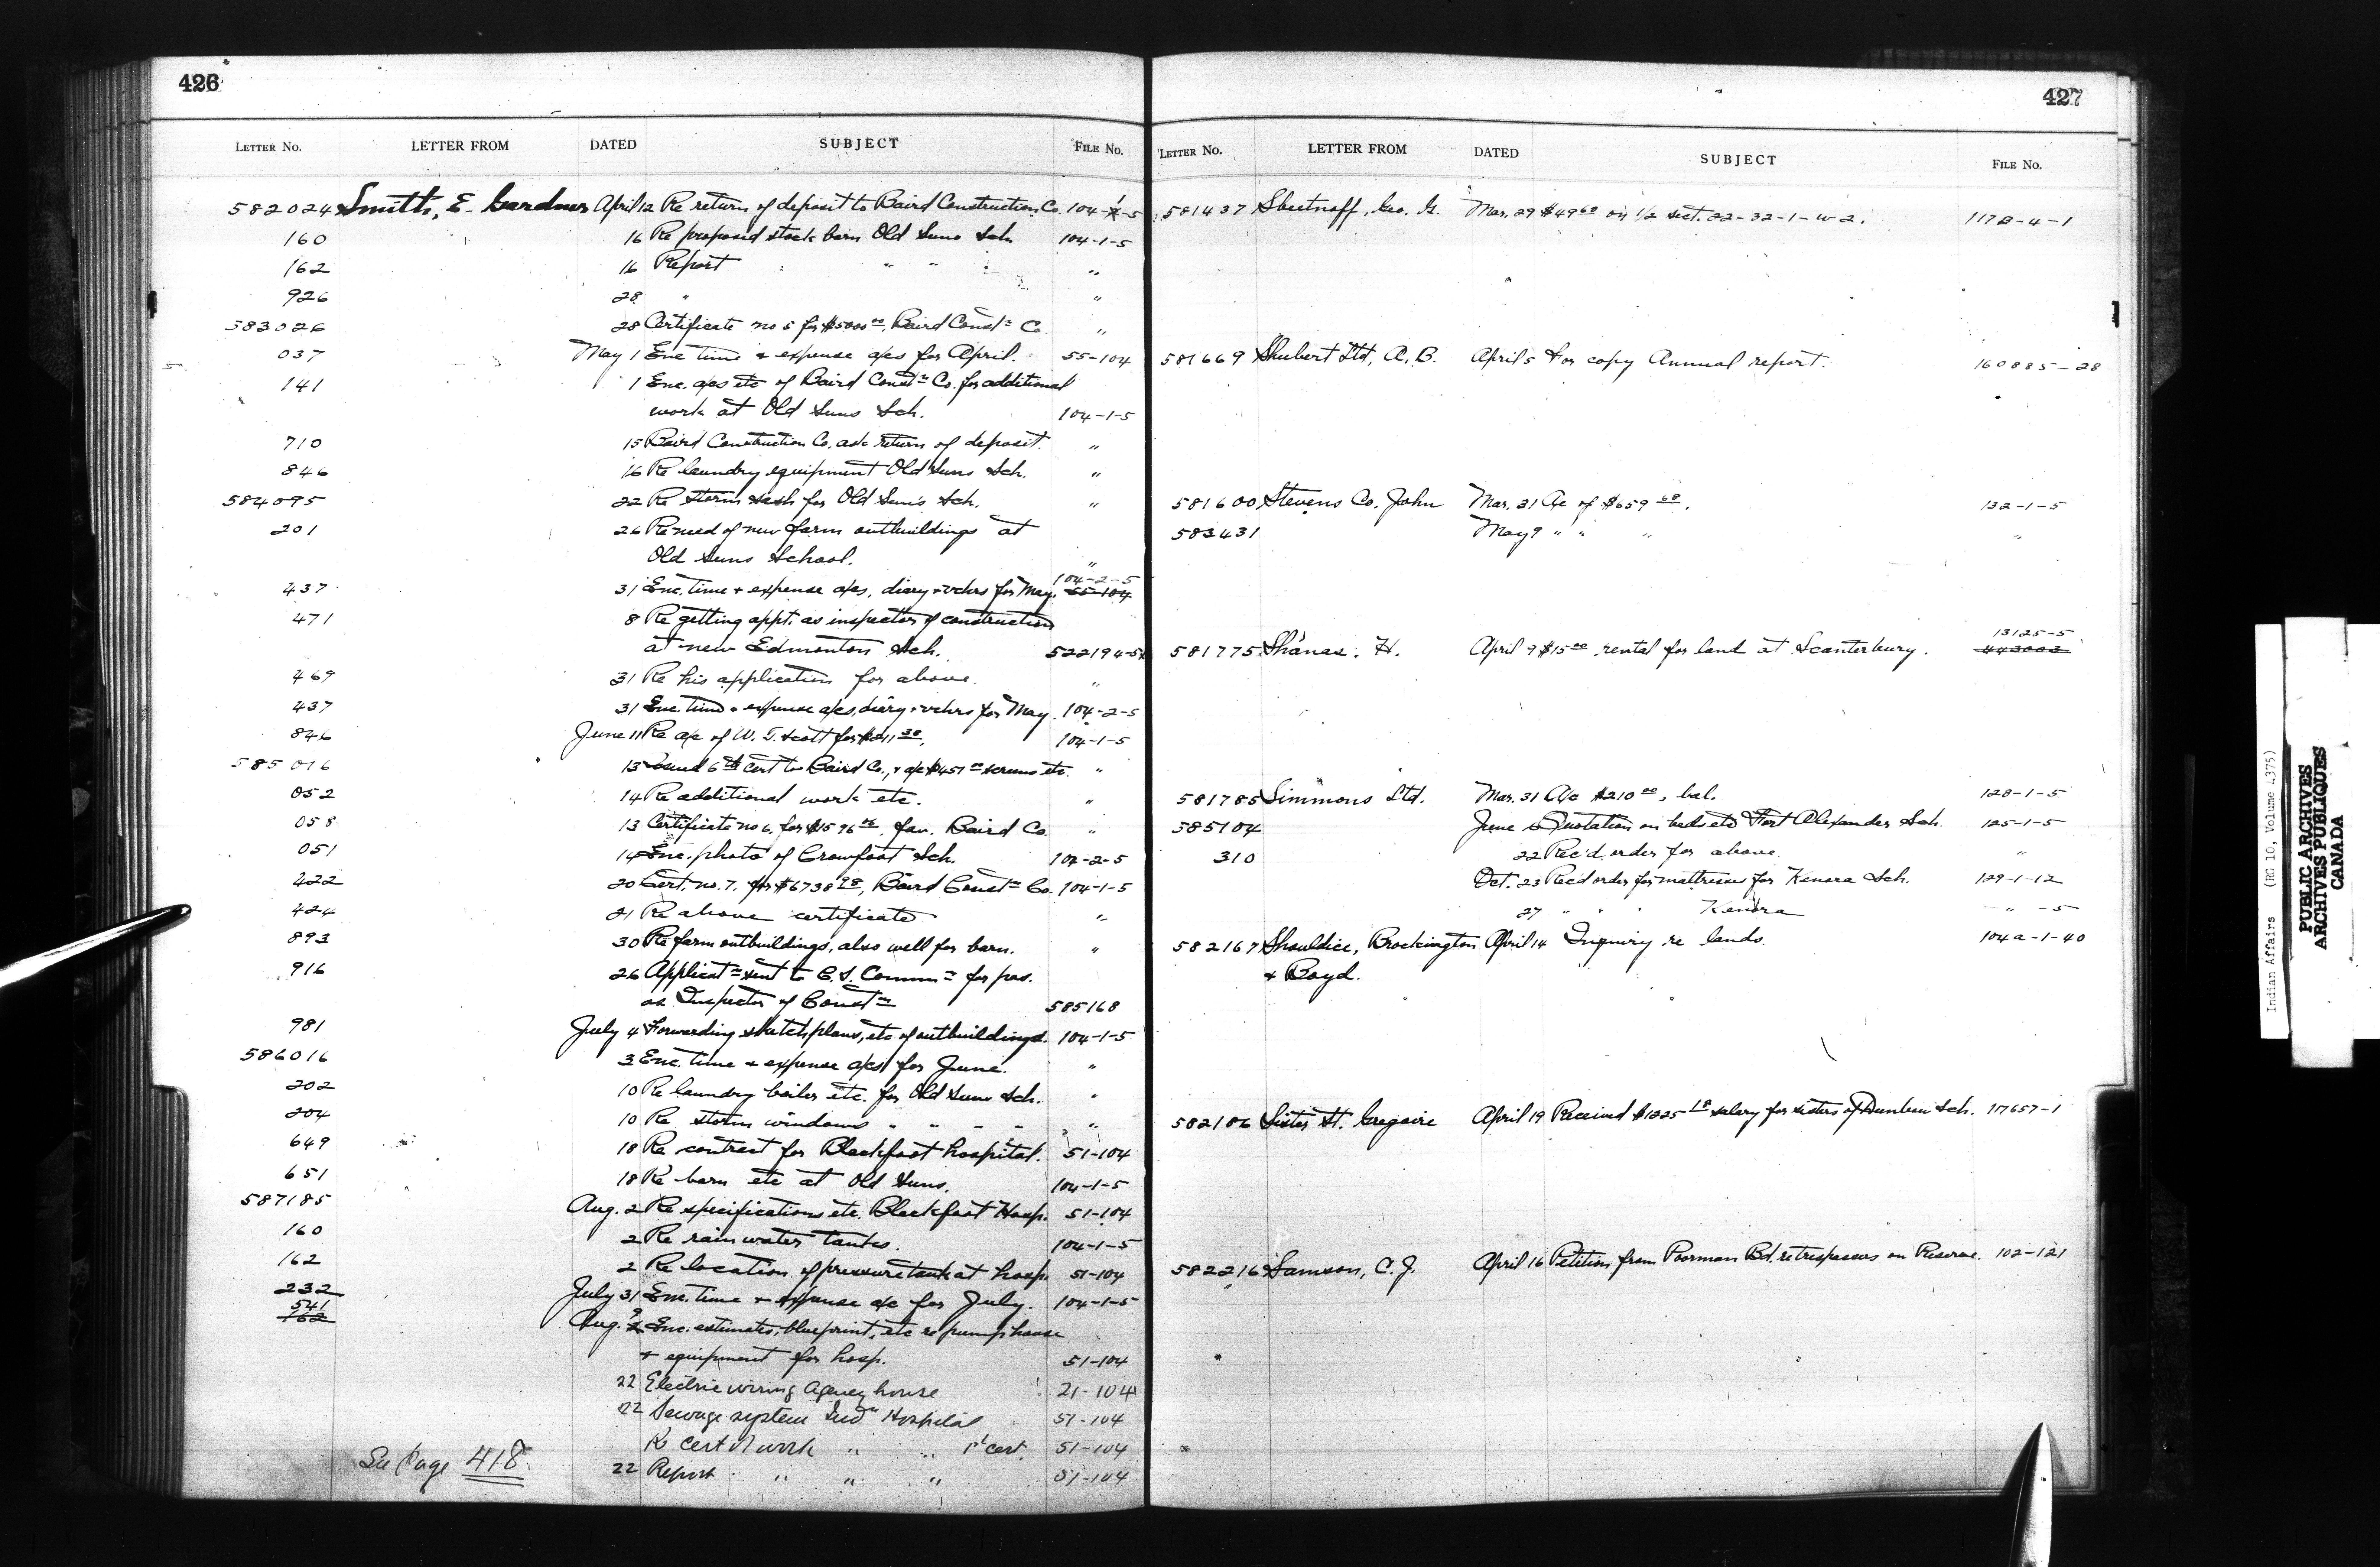 426
LETTER No. LETTER FROM DATED SUBJECT FILE No.
582024 Smith, E. Gardner April 12 Re return of deposit to Baird Construction Co. 104-1-5
160 16 Re proposed stock barn Old Suns Sch. 104-1-5
162 16 Report " " " "
926 28 " "
583026 28 Certificate no 5 for $5000 00, Baird Const n Co. "
037 May 1 Enc. time & expense a/cs for April. 55-104
141 1 Enc. a/cs etc of Baird Const n Co. for additional
work at Old Suns Sch. 104-1-5
710 15 Baird Construction Co. ask return of deposit. "
846 16 Re laundry equipment Old Suns Sch. "
584095 22 Re storm sash for Old Sun's Sch. "
201 26 Re need of new farm outbuildings at
Old Suns School. "
104-2-5
437 31 Enc. time & expense a/cs, diary & vchrs for May. 55-104
471 8 Re getting appt. as inspector of construction
at new Edmonton Sch. 522194-5
469 31 Re his application for above. "
437 31 Enc. time & expense a/cs, diary & vchrs for May. 104-2-5
846 June 11 Re a/c of W. T. Scott for $211 30. 104-1-5
585016 13 Sound 6th Cert to Baird Co., & a/c $451 00 screens etc. "
052 14 Re additional work etc. "
058 13 Certificate no 6, for $1596 06, fav. Baird Co. "
051 14 Enc. photo of Crowfoot Sch. 104-2-5
422 20 Cert. no. 7. for $6738 90, Baird Const n Co. 104-1-5
424 21 Re above certificate "
893 30 Re farm outbuildings, also well for barn. "
916 26 Applicat n sent to C.S. Comm n for pos.
as Inspector of Const n 585168
981 July 4 Forwarding sketch plans, etc of outbuildings. 104-1-5
586016 3 Enc. time & expense a/cs for June. "
202 10 Re laundry boiler etc. for Old Suns Sch. "
204 10 Re storm windows " " " " "
649 18 Re contract for Blackfoot hospital. 51-104
651 18 Re barn etc at Old Suns. 104-1-5
587185 Aug. 2 Re specifications etc. Blackfoot Hosp. 51-104
160 2 Re rain water tanks. 104-1-5
162 2 Re location of pressure tank at hosp. 51-104
232 July 31 Enc. time & expense a/c for July. 104-1-5
541
162 Aug. 9 Enc. estimates, blueprint, etc re pumphouse
& equipment for hosp. 51-104
22 Electric wiring Agency house 21-104
22 Sewage system Ind n Hospital 51-104
Re cert of work " " 1st cert. 51-104
See page 418 22 Report " " " 51-104
427
LETTER No. LETTER FROM DATED SUBJECT FILE No.
581437 Geo. G. Mar. 29 $49 60 on 1/2 sect. 22-32-1-w-2. 117B-4-1
581669 Shubert Ltd, A. B. April 5 For copy Annual report. 160885-28
581600 Stevens Co. John Mar. 31 A/c of $659 68. 132-1-5
583431 May 9 " " " "
13125-5
581775 Shanas, H. April 9 $15 00 rental for land at Scanterbury. 443003
581785 Simmons Ltd. Mar. 31 A/c $210 00, bal. 128-1-5
585104 June Quotation on beds etc Fort Alexander Sch. 125-1-5
310 22 Rec'd order for above. "
Oct. 23 Rec'd order for mattresses for Kenora Sch. 129-1-12
27 " " " Kenora " -5
582167 Shouldice, Brockington April 14 Inquiry re lands. 104a-1-40
& Boyd.
582186 Sister St. Gregoire April 19 Received $1225 18 salary for sisters of Dunbow Sch. 117657-1
582216 Samson, C. J. April 16 Petition from Poorman Bd. re trespassers on Reserve. 102-121
Indian Affairs (RG 10, Volume 4375)
PUBLIC ARCHIVES
ARCHIVES PUBLIQUES
CANADA